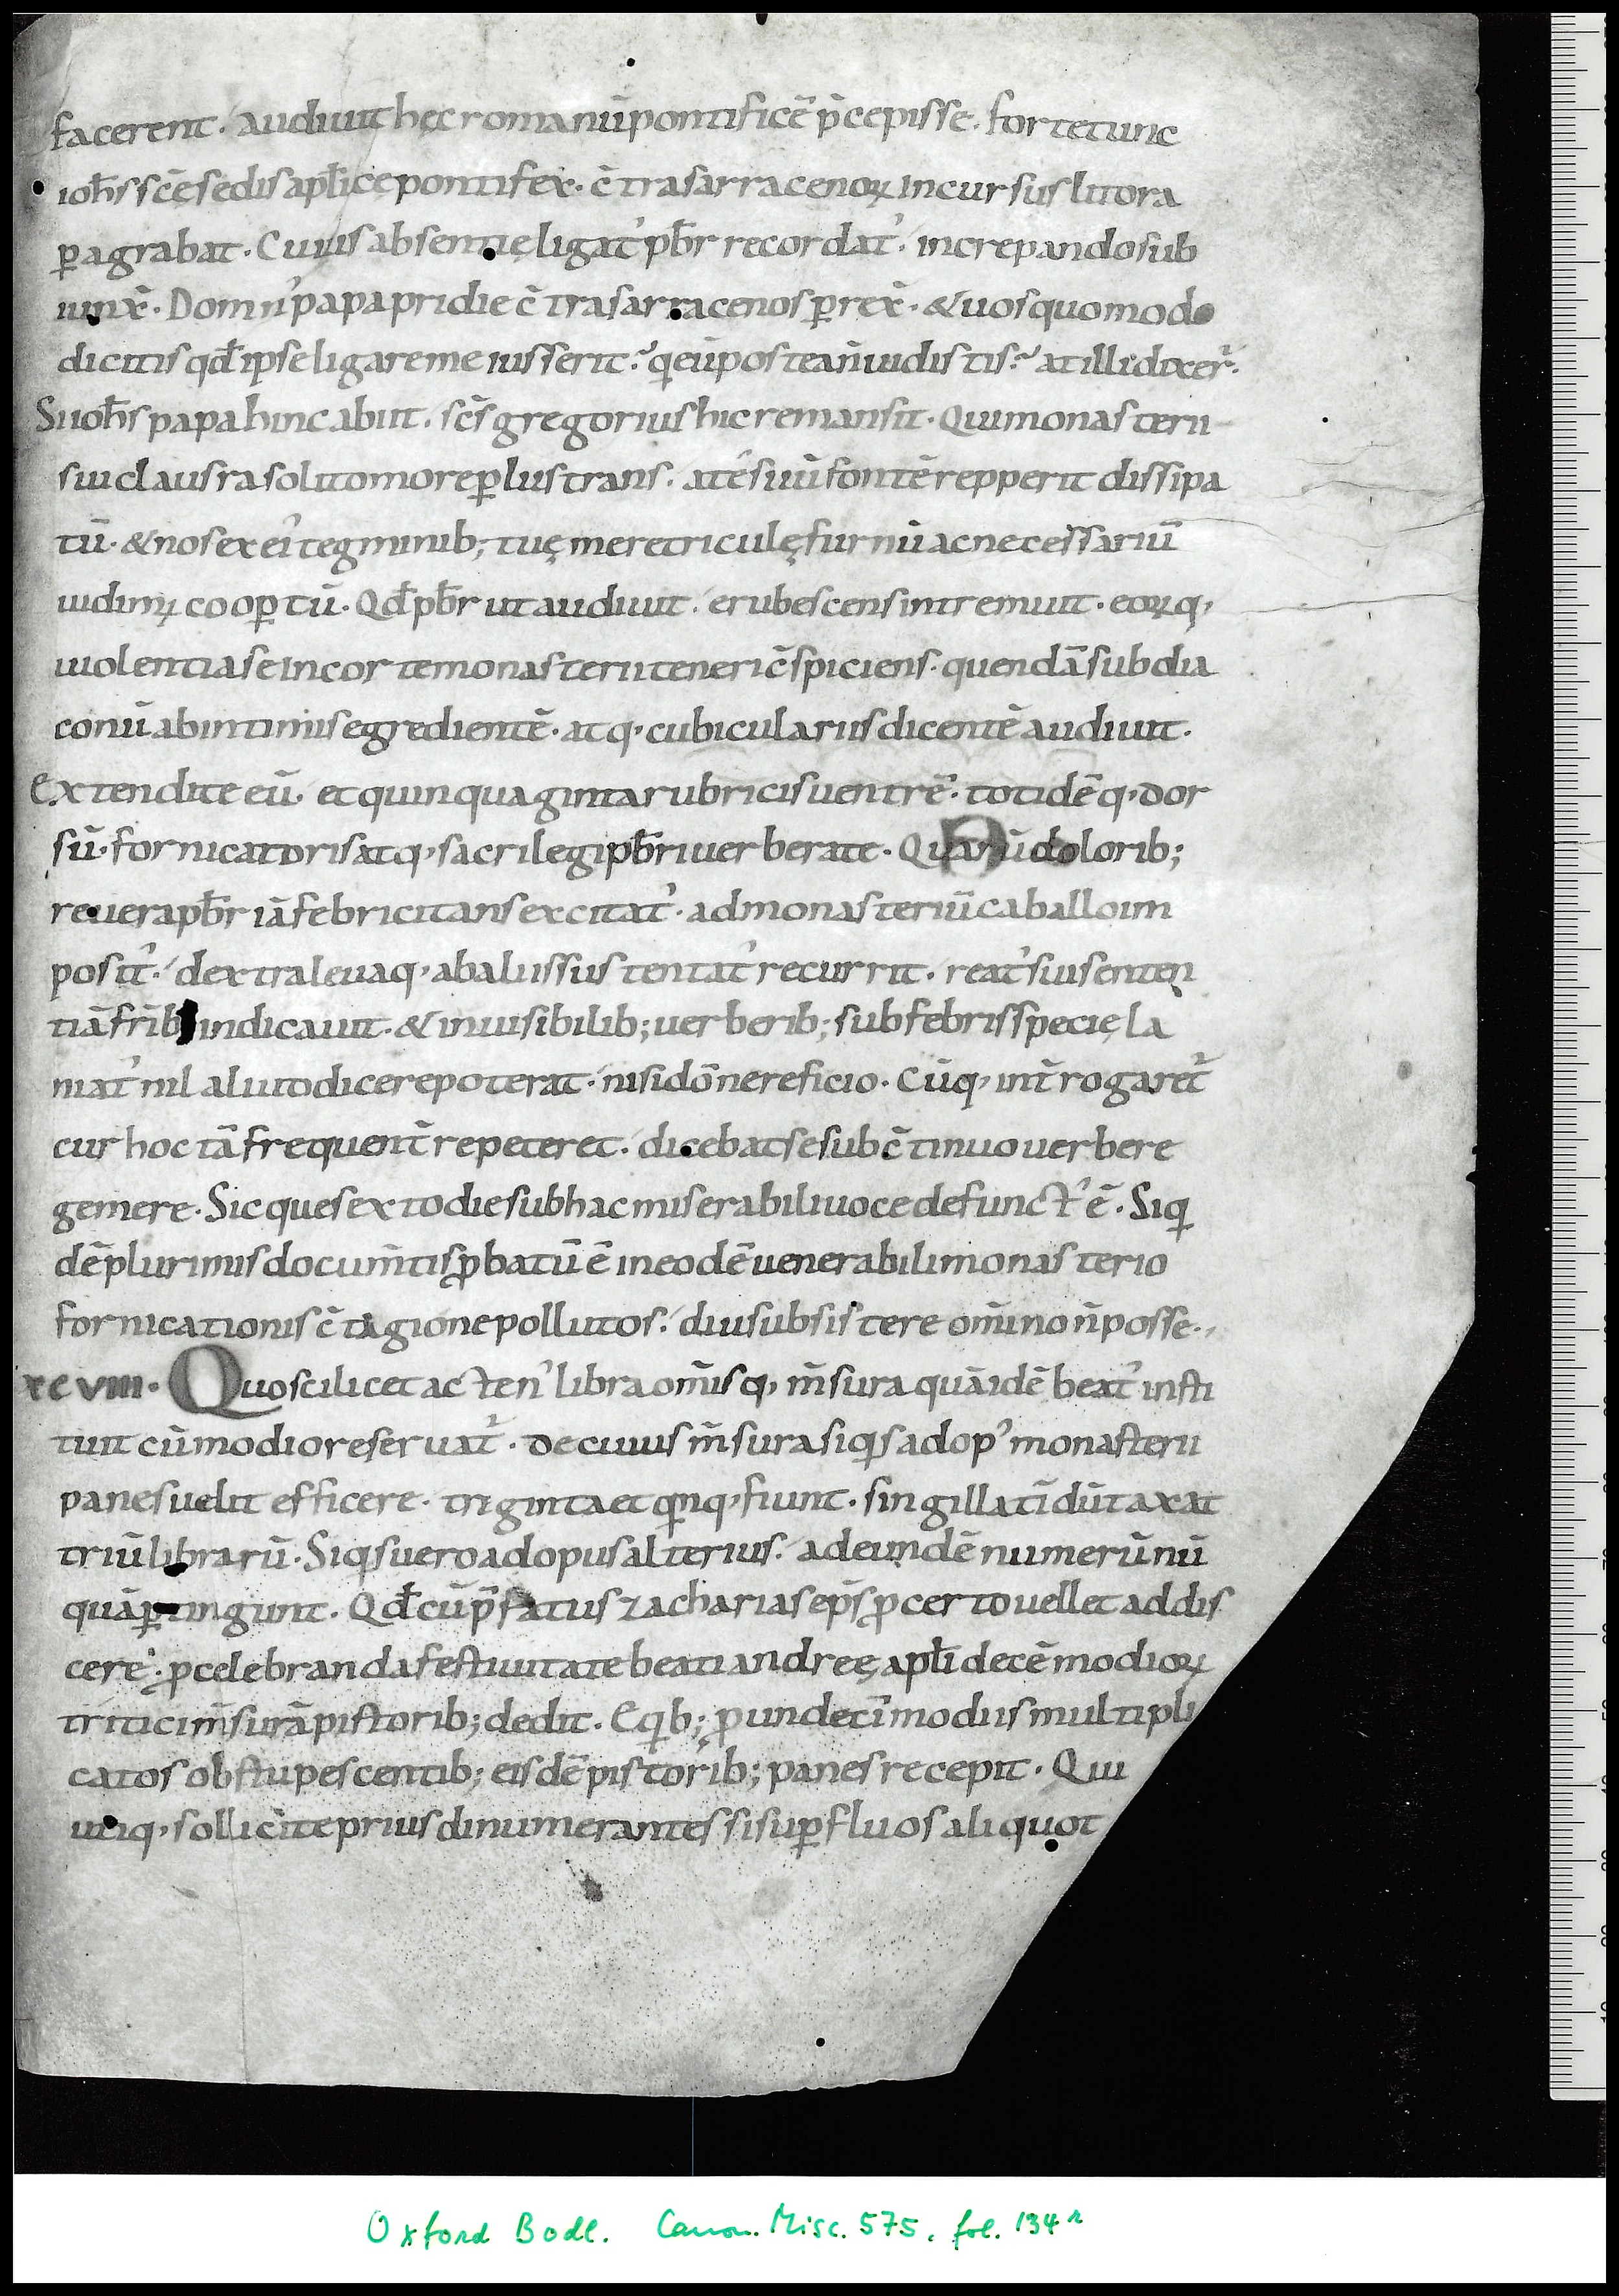 facerent. audiuit hęc romanū pontificē p̄cepisse. forte tunc
ioh̄s sc̄ę sedis apl̄icę pontifex. c̄tra sarracenoꝝ incursus litora
ꝑagrabat. Cuius absentię ligat᾿ pb̄r recordat᾿. increpando sub
iunx̄. Domn᾿ papa pridie c̄tra sarracenos ꝑrex̄. & uos quomodo
dicitis qd̄ ipse ligare me iusserit? q eū postea n̄ uidistis? at illi dixer̄.
Si ioh̄s papa hinc abiit. sc̄s gregorius hic remansit. Qui monasterii
sui clausra solito more ꝑlustrans. atē siuū fontē repperit dissipa
tū. & nos ex ei᾿ tegminib; tuę meretriculę furnū ac necessariū
uidim᾿ cooꝑtū. Qd̄ pb̄r ut audiuit. erubescens intremuit. eoꝝq,
uiolentia se in corte monasterii teneri c̄spiciens. quendā subdia
conū ab intimis egredientē. atq, cubiculariis dicentē audiuit.
Extendite eū. et quinquaginta rubricis uentrē. totidēq, dor
sū. fornicatoris atq, sacrilegi pb̄ri uerberate. Quarū dolorib;
reuera pb̄r iā febricitans excitat᾿. ad monasteriū caballo im
posit᾿. dextra leuaq, ab aliis sustentat᾿ recurrit. reat᾿ sui senten
tiā frīb; indicauit. & inuisibilib; uerberib; sub febris specię la
niat᾿ nil aliud dicere poterat. nisi dōne reficio. Cūq, int̄rogaret᾿
cur hoc tā frequent̄ repeteret. dicebat se sub c̄tinuo uerbere
gemere. Sicque sexto die sub hac miserabili uoce defunct᾿ ē. Siq
dē plurimis docum̄tis ꝓbatū ē in eodē uenerabili monasterio
fornicationis c̄tagione pollutos. diu subsistere om̄ino n̄ posse.,
xcviii. Quo scilicet acten᾿ libra om̄isq, m̄sura quā idē beat᾿ insti
tuit cū modio reseruat᾿. De cuius m̄sura siqs ad op᾿ monasterii
panes uelit efficere. triginta et qnq, fiunt. singillatī dūtaxat
triū librarū. Siqs uero ad opus alterius. ad eundē numerū nū
quā ꝑtingunt. Qd̄ cū p̄fatus zacharias ep̄s ꝓ certo uellet addis
cere. ꝓ celebranda festiuitate beati andreę apl̄i decē modioꝝ
tritici m̄surā pistorib; dedit. Eqib; ꝓ undecī modiis multipli
catos obstupescentib; eisdē pistorib; panes recepit. Qui
utiq, sollicite prius dinumerantes si suꝑfluos aliquot
Oxford Bodl. Canon. Misc. 575, fol. 134r